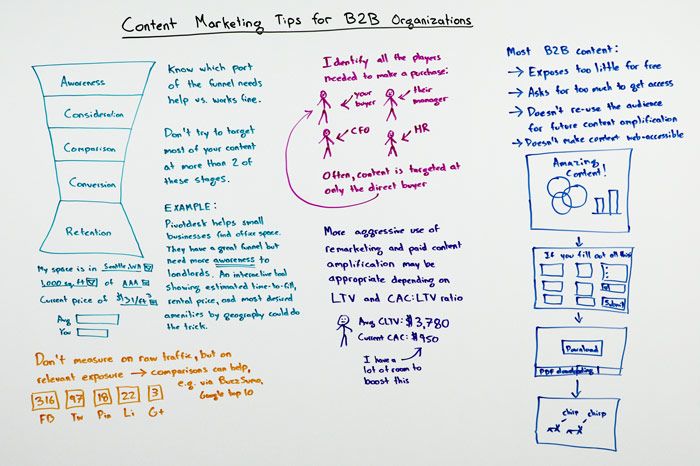 Content Marketing Tips for B2B Organizations
Awareness
Consideration
Comparison
Conversion
Retention
Know which part
of the funnel needs
help vs. works fine.
Don't try to target
most of your content
at more than 2 of
these stages.
EXAMPLE:
Pivotdesk helps small
businesses find office space.
They have a great funnel but
need more awareness to
landlords. An interactive tool
showing estimated time-to-fill,
rental price, and most desired
amenities by geography could do
the trick.
My space is in Seattle, WA
1,000 sq. ft of AAA
Current price of $31/ft
Avg
You
Don't measure on raw traffic, but on
relevant exposure → comparisons can help,
e.g. via BuzzSumo,
Google top 10
316 97 18 22 3
FB Tw Pin Li G+
Identify all the players
needed to make a purchase:
your
buyer
their
manager
CFO
HR
Often, content is targeted at
only the direct buyer
More aggressive use of
remarketing and paid content
amplification may be
appropriate depending on
LTV and CAC:LTV ratio
Avg CLTV: $3,780
Current CAC: $950
I have a
lot of room to
boost this
Most B2B content:
→ Exposes too little for free
→ Asks for too much to get access
→ Doesn't re-use the audience
for future content amplification
→ Doesn't make content web-accessible
Amazing
Content!
If you fill out all this
Submit
Download
PDF downloading
chirp chirp